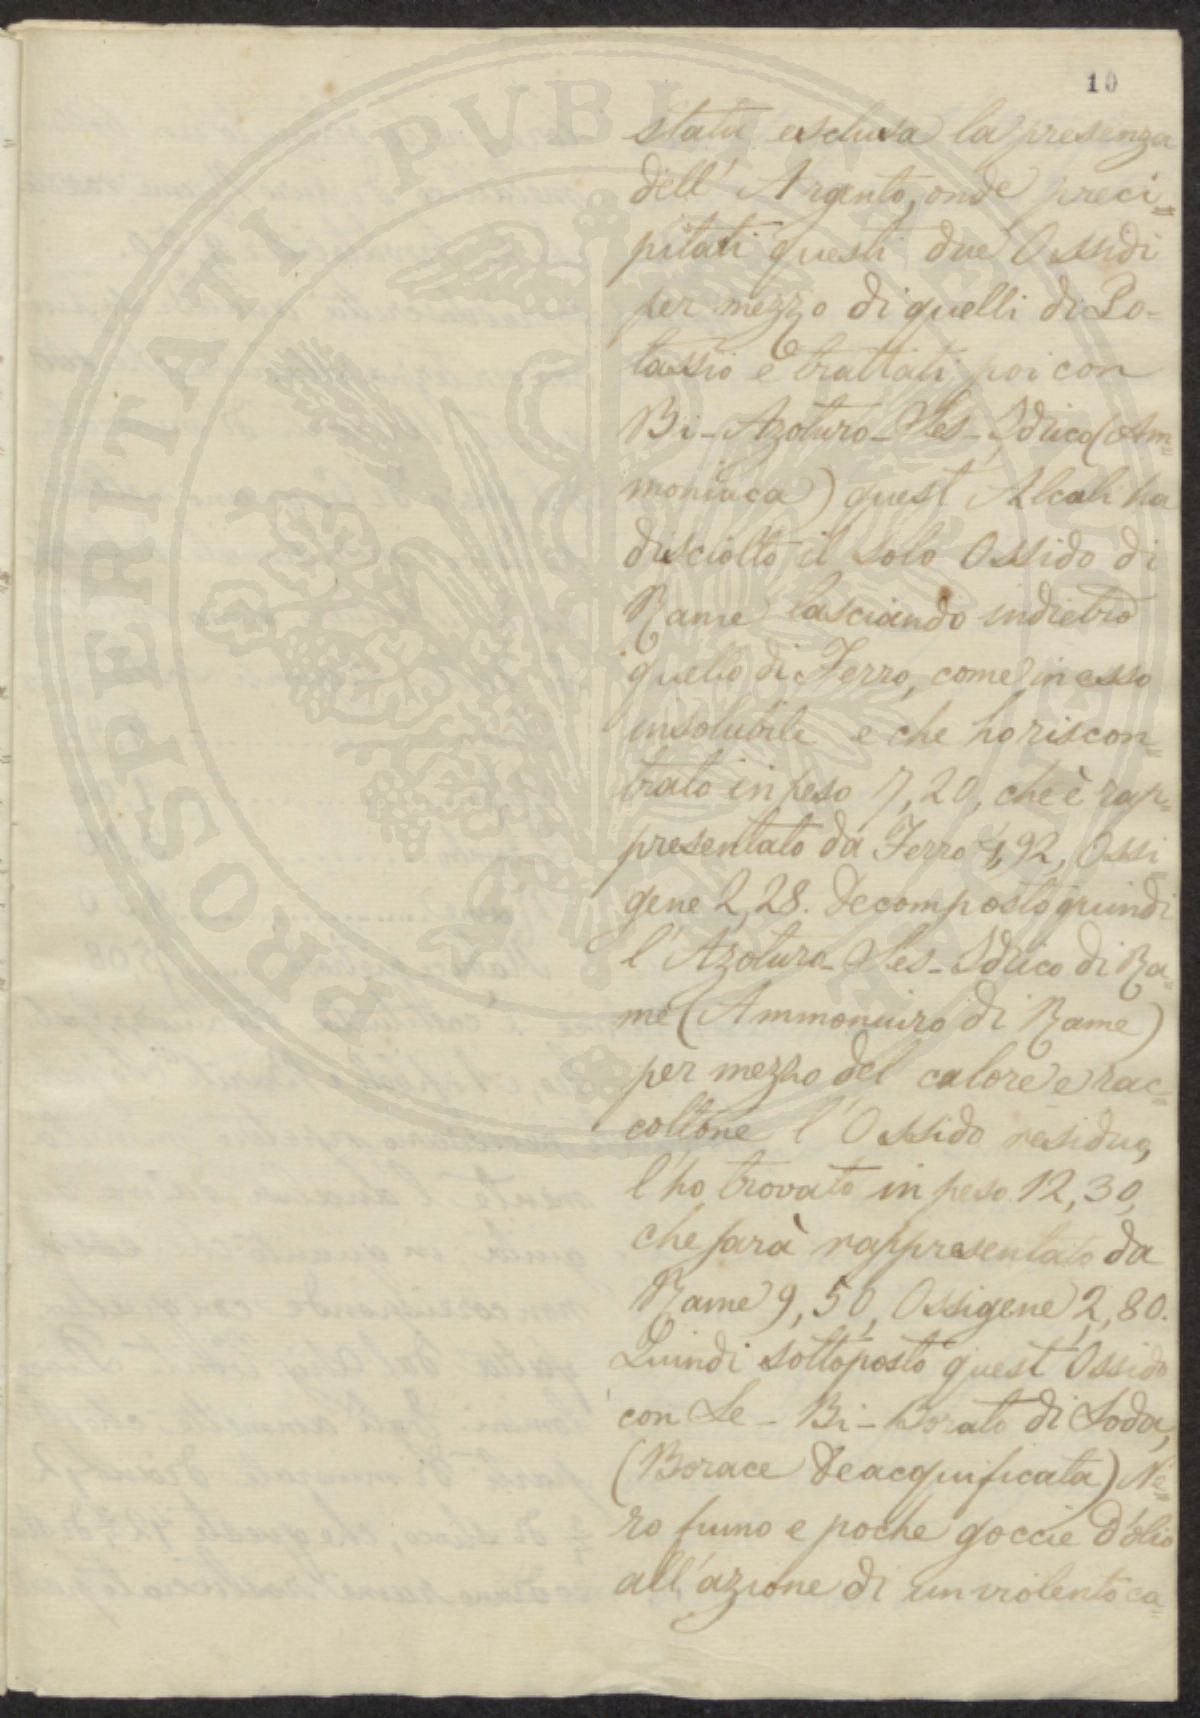 10
stata esclusa la presenza
dell' Argento, onde preci=
pitati questi due Ossidi
per mezzo di quelli di Po-
tassio e trattati poi con
Bi-Azoturo-Ses-Idrico (Am=
moniaca) quest' Alcali ha
disciolto il solo Ossido di
Rame lasciando indietro
quello di Ferro, come in esso
insolubile e che ho riscon=
trato in peso 7,20, che è rap=
presentato da Ferro 4,92, Ossi
gene 2,28. Decomposto quindi
l' Azoturo-Ses-Idrico di Ra=
me (Ammoniuro di Rame)
per mezzo del calore e rac=
coltone l' Ossido residuo,
l'ho trovato in peso 12,30,
che sarà rappresentato da
Rame 9,50, Ossigene 2,80.
Quindi sottoposto quest' Ossido
con Se-Bi-Borato di Soda,
(Borace Deacquificata) Ne=
ro fumo e poche goccie d'olio
all'azione di un violento ca=
PROSPERITATI PUBLICAE